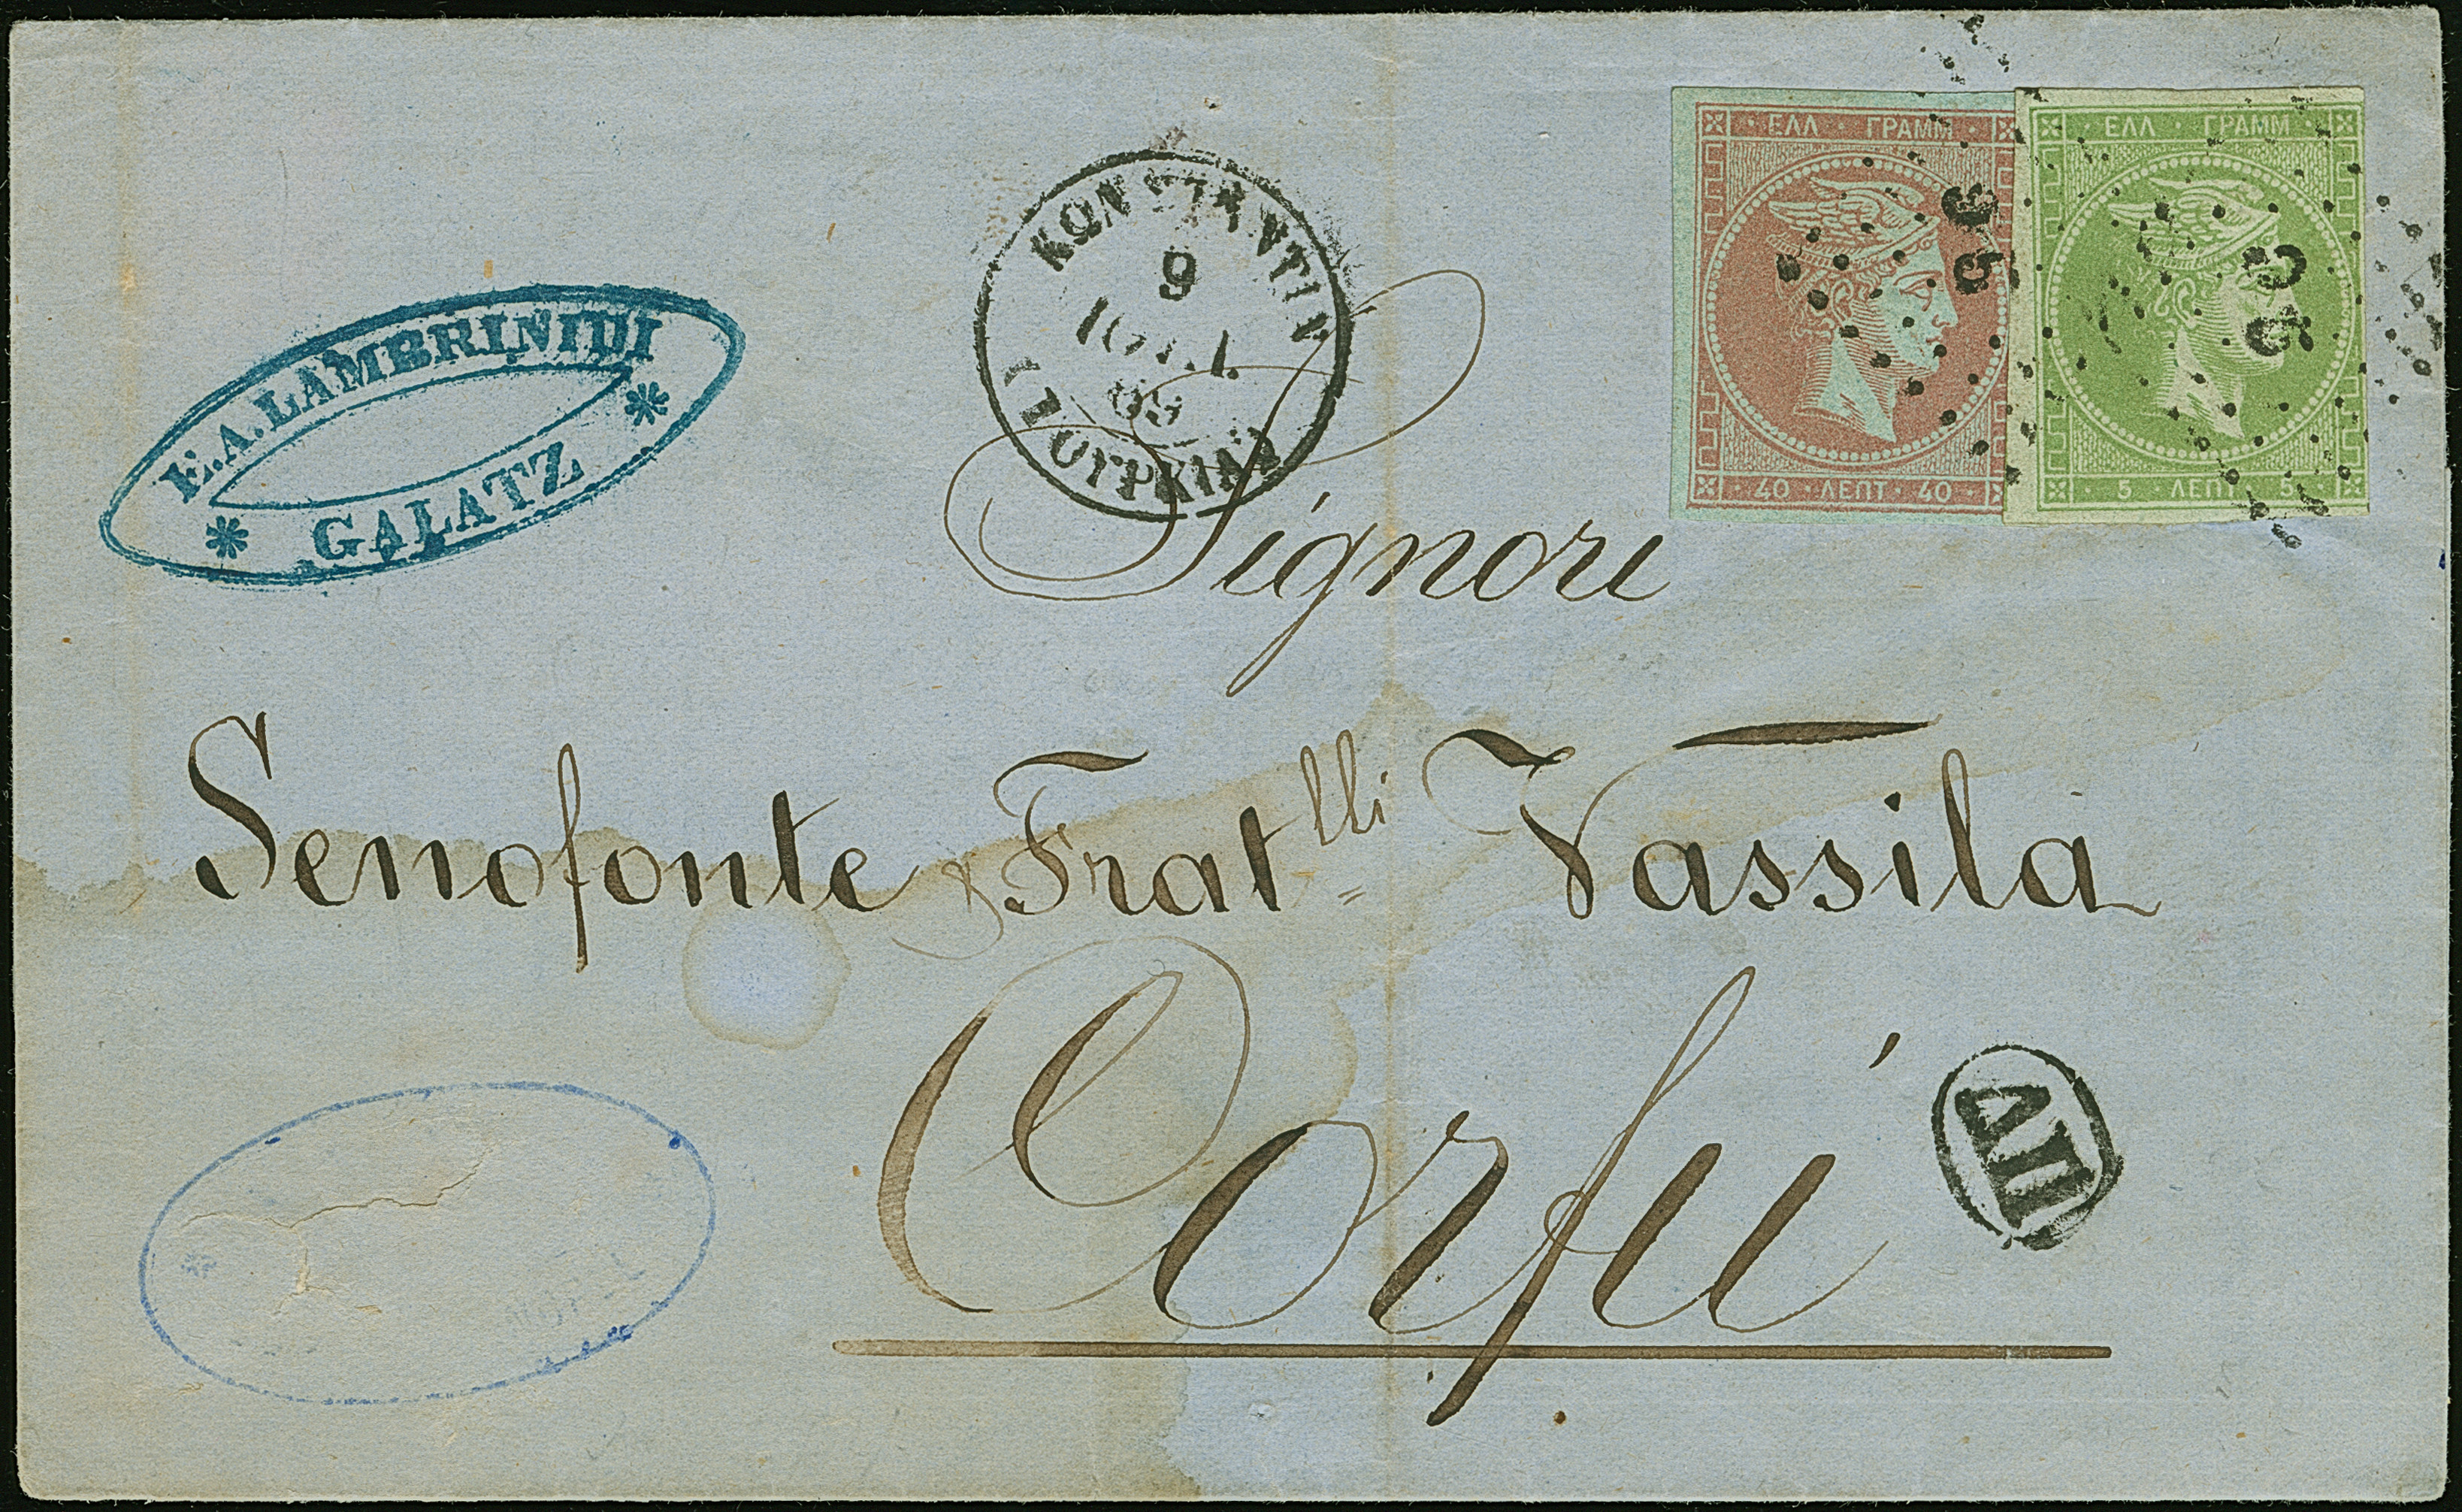 ΕΛΛ · ΓΡΑΜΜ
40 · ΛΕΠΤ · 40
ΕΛΛ · ΓΡΑΜΜ
5 · ΛΕΠΤ · 5
ΚΩΝΣΤΑΝΤΙΝ
9
(ΤΟΥΡΚΙΑ)
E.A. LAMBRINIDI
GALATZ
Signori
Senofonte & Frat^lli Vassila
Corfú
ΔΠ